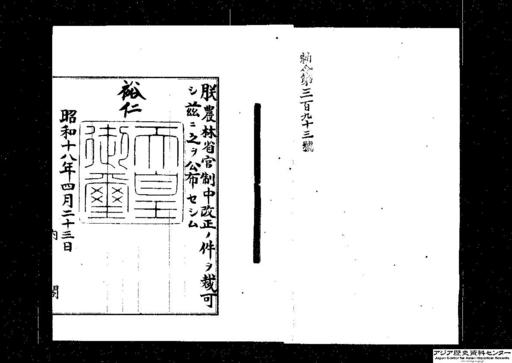 勅令第三百九十三號
朕農林省官制中改正ノ件ヲ裁可
シ茲ニ之ヲ公布セシム
裕仁
天皇
御璽
昭和十八年四月二十三日
内閣
アジア歴史資料センター
Japan Center for Asian Historical Records